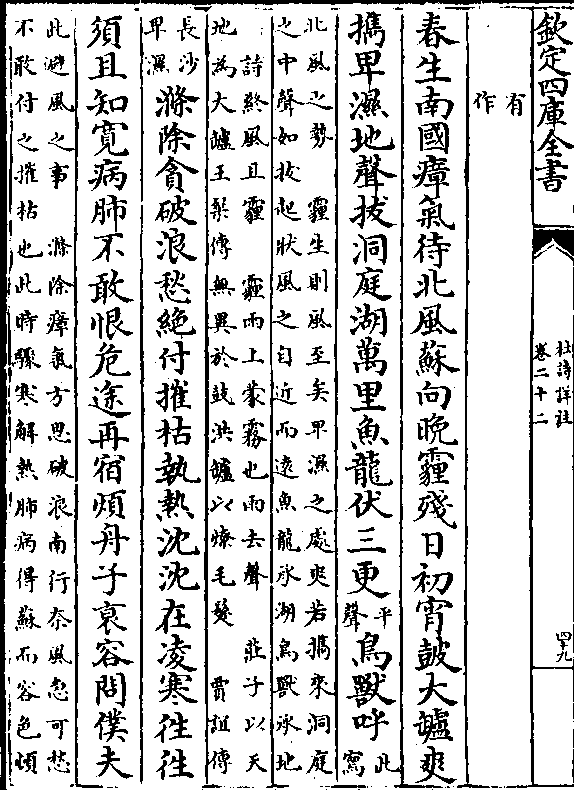 欽定四庫全書
杜詩詳註
卷二十二
四十九
有
作
春生南國瘴氣待北風蘇向晩霾殘日初宵鼓大鑪爽
攜卑濕地聲拔洞庭湖萬里魚龍伏三更平聲鳥獸呼此寫
北風之勢 霾生則風至矣卑濕之處爽若攜來洞庭
之中聲如拔起狀風之自近而遠魚龍承湖鳥獸承地
詩終風且霾 霾雨上蒙霧也雨去聲 莊子以天
地為大鑪王粲傳無異於鼓洪鑪以燎毛髮 賈誼傳
長沙卑濕滌除貪破浪愁絶付摧枯執熱沈沈在凌寒往往
須且知寛病肺不敢恨危途再宿煩舟子衰容問僕夫
此避風之事 滌除瘴氣方思破浪南行奈風急可愁
不敢付之摧枯也此時驟寒解熱肺病得蘇而容色煩